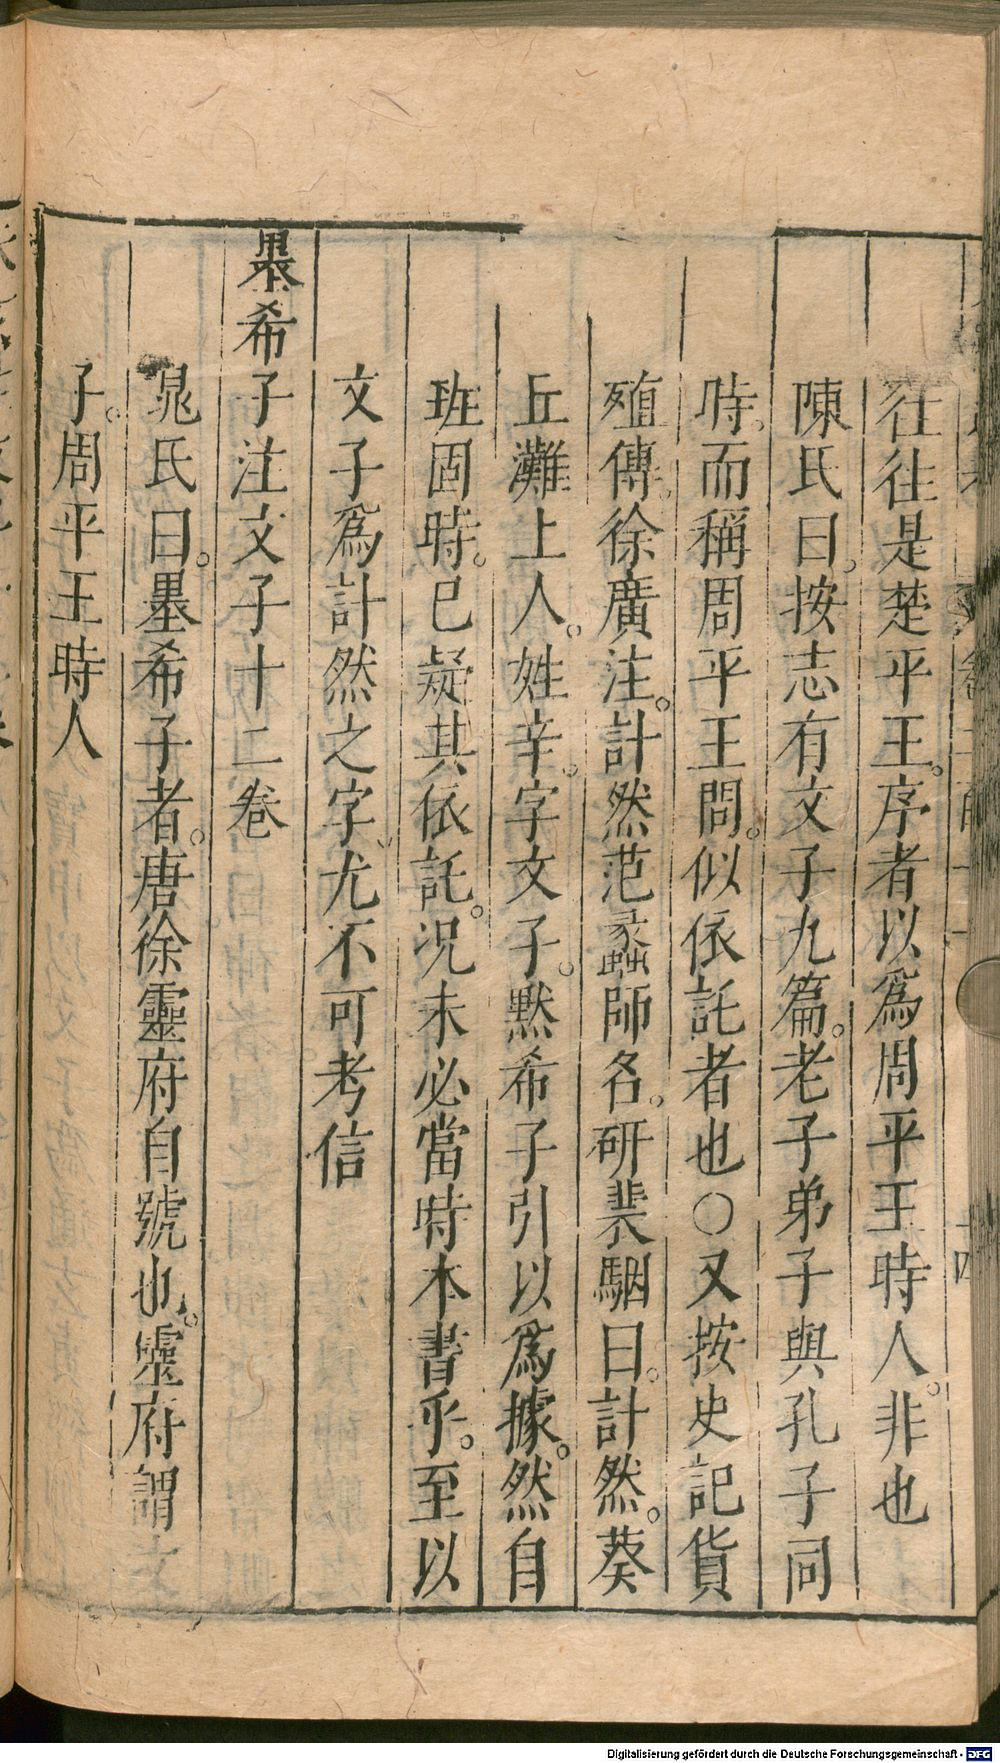 往往是楚平王。序者以爲周平王時人。非也
陳氏曰。按志有文子九篇。老子弟子與孔子同
時。而稱周平王問。似依託者也○又按史記貨
殖傳。徐廣注。計然范蠡師名。研裴駰曰。計然。葵
丘濮上人。姓辛。字文子。默希子引以爲據。然自
班固時。已疑其依託。况未必當時本書乎。至以
文子爲計然之字。尤不可考信
墨希子注文子十二卷
晁氏曰。墨希子者。唐徐靈府自號也。靈府謂文
子。周平王時人
Digitalisierung gefördert durch die Deutsche Forschungsgemeinschaft - DFG